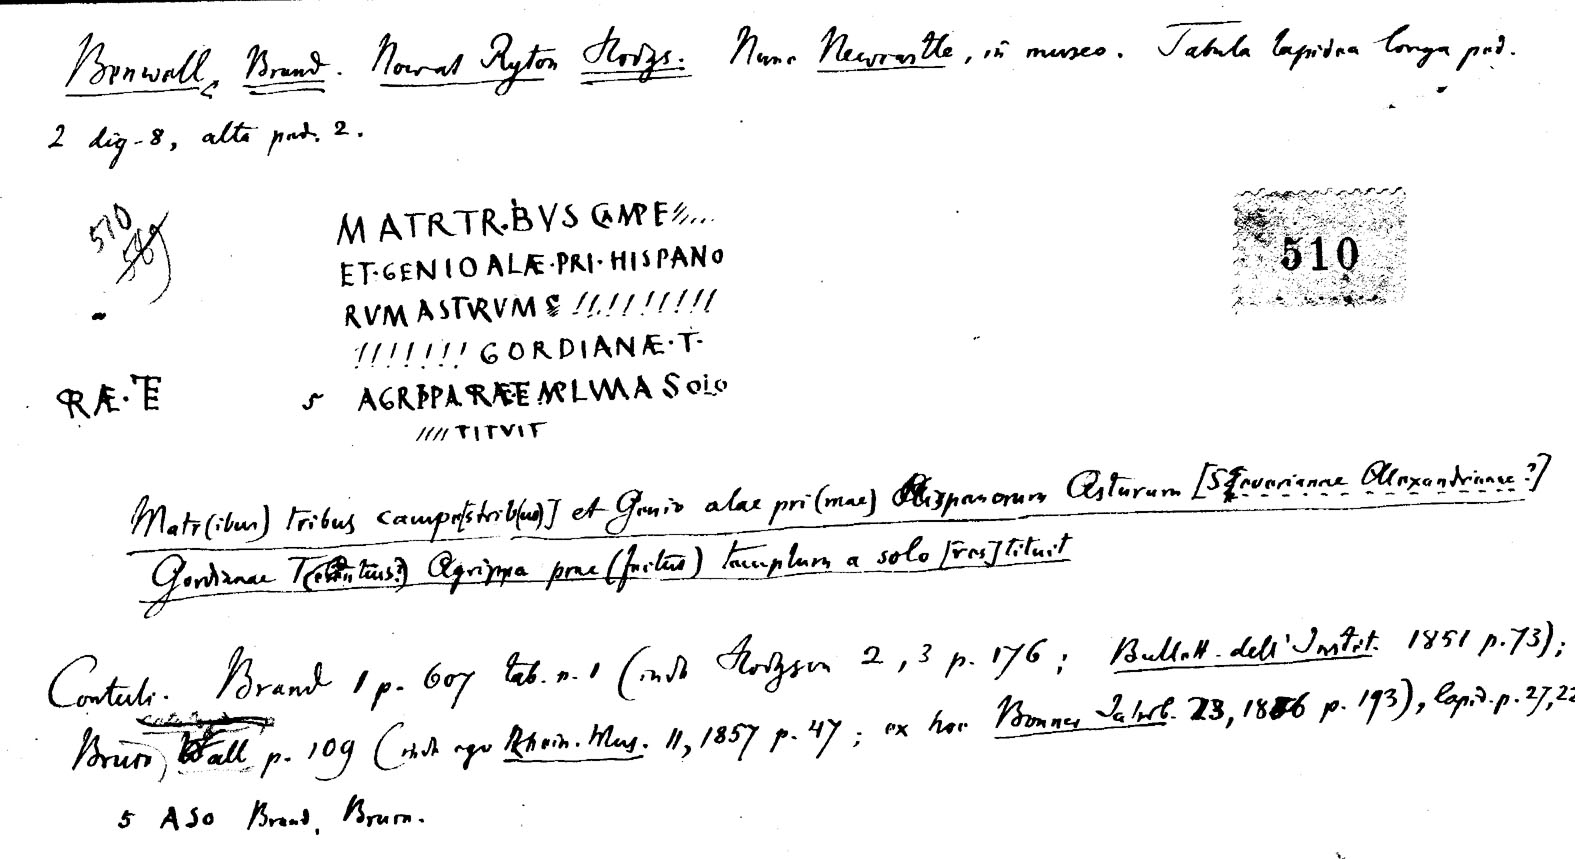 Benwall, Brand. Novat Ryton Hodgs. Nunc Newcastle, in museo. Tabula lapidea longa ped.
2 dig-8, alta ped. 2.
510
569
510
MATRTR.BVS CAMPE
ET·GENIO ALÆ·PRI·HISPANO
RVM ASTVRVM
GORDIANÆ·T·
RÆ·TE
5 AGRIPPA RÆ·TEMPLVM A SOLO
TITVIT
Matr(ibus) tribus campe[strib(us)] et Genio alae pri(mae) Hispanorum Asturum [Severianae Alexandrianae?]
Gordianae T(erentius?) Agrippa prae(fectus) templum a solo [res]tituit
Contuli. Brand 1 p. 607 tab. n. 1 (inde Hodgson 2, 3 p. 176; Bullett. dell' Instit. 1851 p. 73);
Bruce, Wall p. 109 (inde ego Rhein. Mus. 11, 1857 p. 47; ex hoc Bonner Jahrb. 23, 1856 p. 193), lapid. p. 27, 22
5 ASO Brand, Bruce.